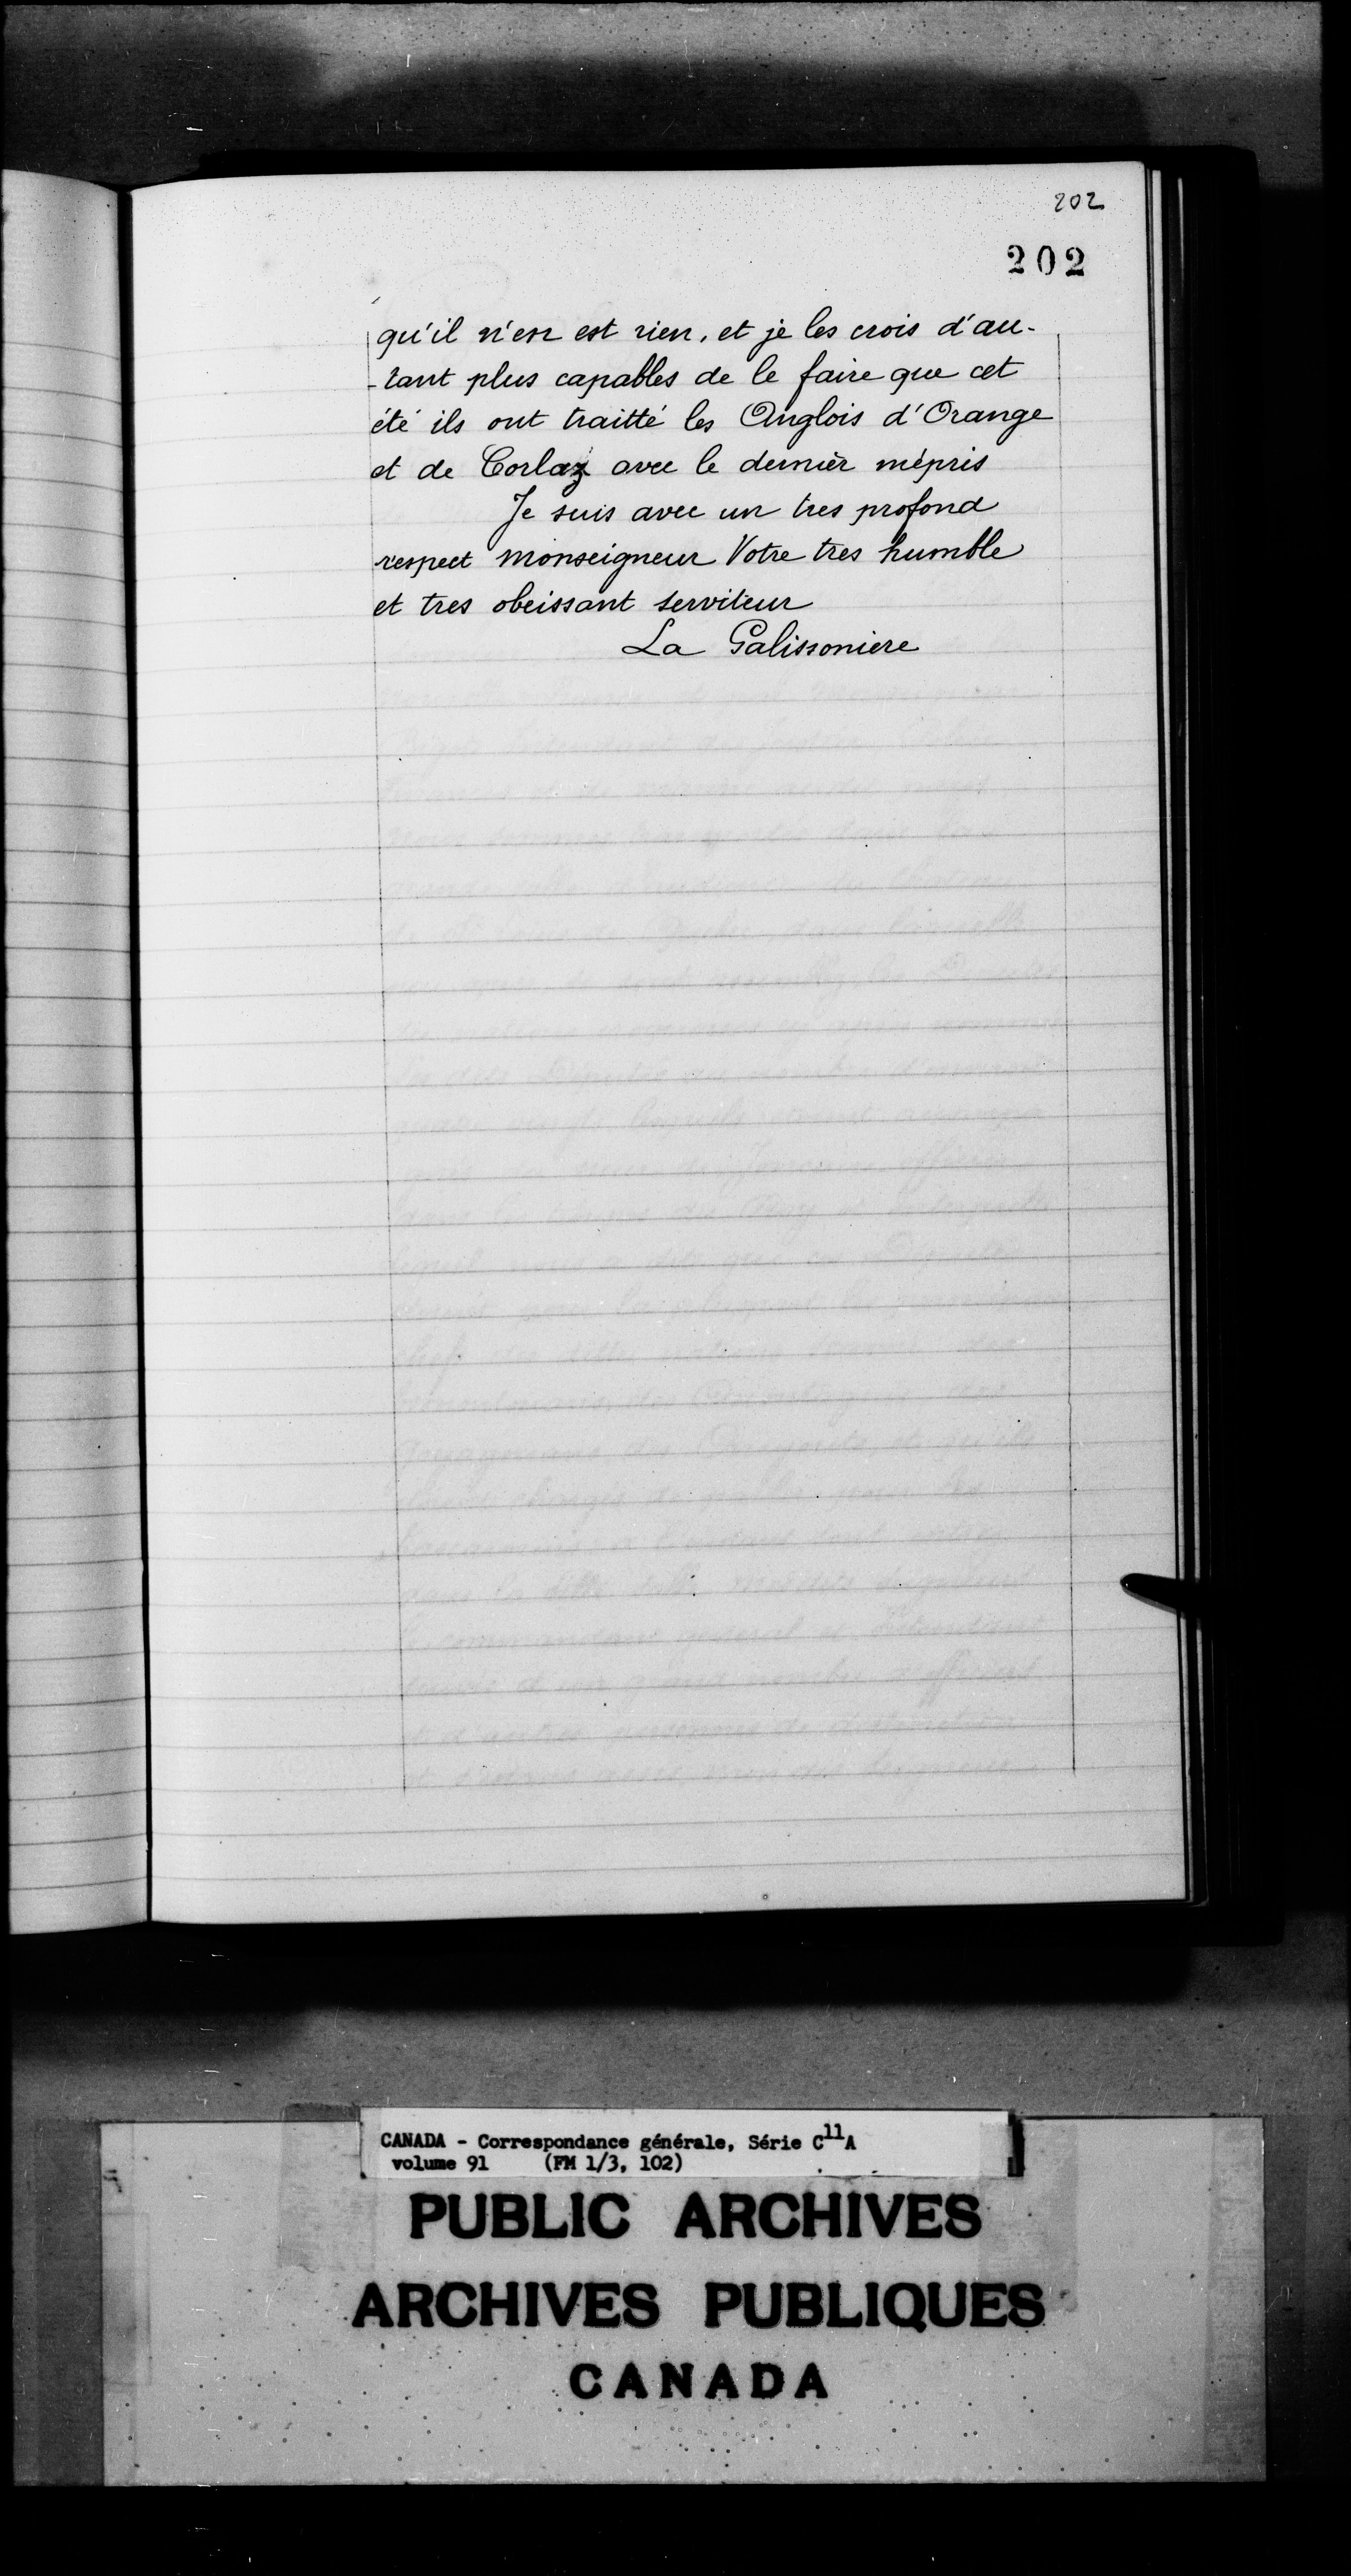 202
202
qu'il n'en est rien, et je les crois d'au-
-tant plus capables de le faire que cet
été ils ont traitté les Anglois d'Orange
et de Corlaz avec le dernier mépris
Je suis avec un tres profond
respect monseigneur Votre tres humble
et tres obeissant serviteur
La Galissoniere
CANADA - Correspondance générale, Série C11A
volume 91 (FM 1/3, 102)
PUBLIC ARCHIVES
ARCHIVES PUBLIQUES
CANADA